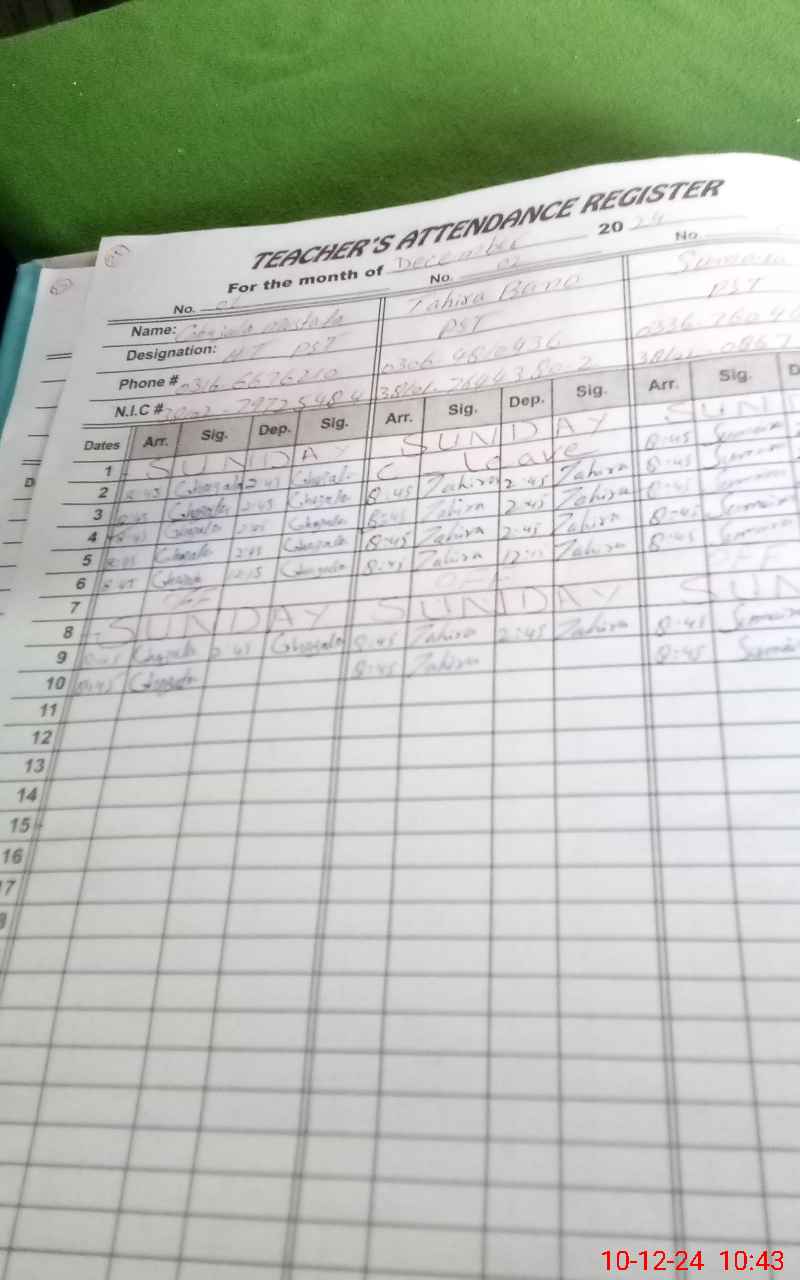 TEACHER'S ATTENDANCE REGISTER
For the month of December 2024
No. 01 No. 02 No.
Name: Mustafa Tahira Bano Sumaira
Designation: HT PST PST PST
Phone # 0316-6676210 0306-4810436 0336-
N.I.C #
Dates Arr. Sig. Dep. Sig. Arr. Sig. Dep. Sig. Arr. Sig. D
1 SUNDAY SUNDAY SUND
2 8:45 Ghazala 2:45 Ghazala Leave 8:45 Sumaira
3 8:45 Ghazala 2:45 Ghazala 8:45 Tahira 2:45 Tahira 8:45 Sumaira
4 8:45 Ghazala 2:45 Ghazala 8:45 Tahira 2:45 Tahira 8:45 Sumaira
5 8:45 Ghazala 2:45 Ghazala 8:45 Tahira 2:45 Tahira 8:45 Sumaira
6 8:45 Ghazala 12:15 Ghazala 8:45 Tahira 12:15 Tahira 8:45 Sumaira
7 OFF OFF OFF
8 SUNDAY SUNDAY SUN
9 8:45 Ghazala 2:45 Ghazala 8:45 Tahira 2:45 Tahira 8:45 Sumaira
10 8:45 Ghazala 8:45 Tahira 8:45 Sumaira
11
12
13
14
15
16
7
10-12-24 10:43